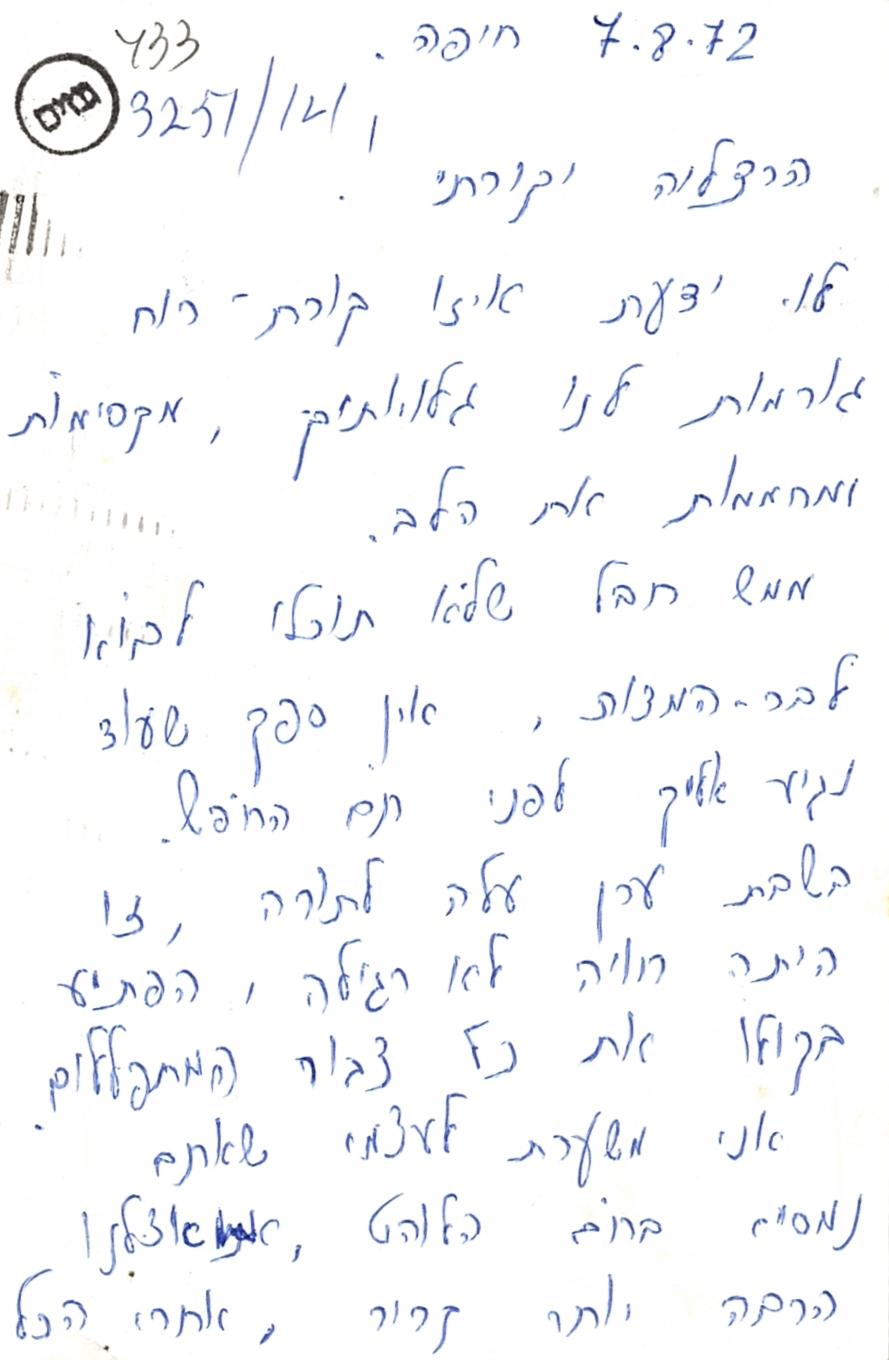 7.8.72 חיפה.
433
3251/121
הרצליה יקירתי.
לו ידעת איזו קורת-רוח
גורמות לנו גלויותיך, מקסימות
ומחממות את הלב.
ממש חבל שלא תוכלו לבוא
לבר-המצוה, אין ספק שעוד
נגיע אליך לפני תם החופש.
בשבת ערן עלה לתורה, זו
היתה חוויה לא רגילה, הפתיע
בקולו את כל צבור המתפללים.
אני משערת לעצמי שאתם
נמסים בחום הלוהט, אצלנו
הרבה יותר קריר, אחרי הכל